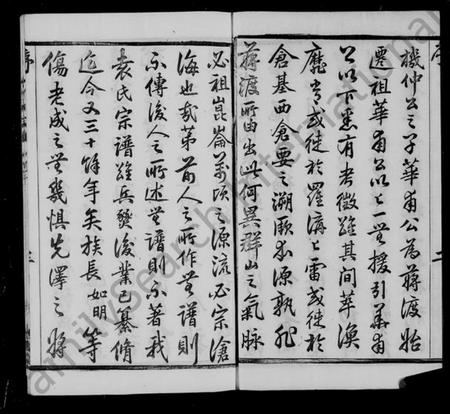 機仲公之子華甫公為蔣渡始
遷祖華甫公以上一無援引華甫
公以下悉有考徵雖其間萃渙
靡常或徙於羅溝上雷或徙於
倉基西倉要之溯厥本源孰非
蔣渡所由出此何異群山之氣脉
必祖崑崙萬頃之源流必宗滄
海也哉第前人之所作無譜則
不傳後人之所述無譜則不著我
袁氏宗譜雖兵燹後業已纂脩
迄今又三十餘年矣族長如明等
傷老成之無幾懼先澤之將
序